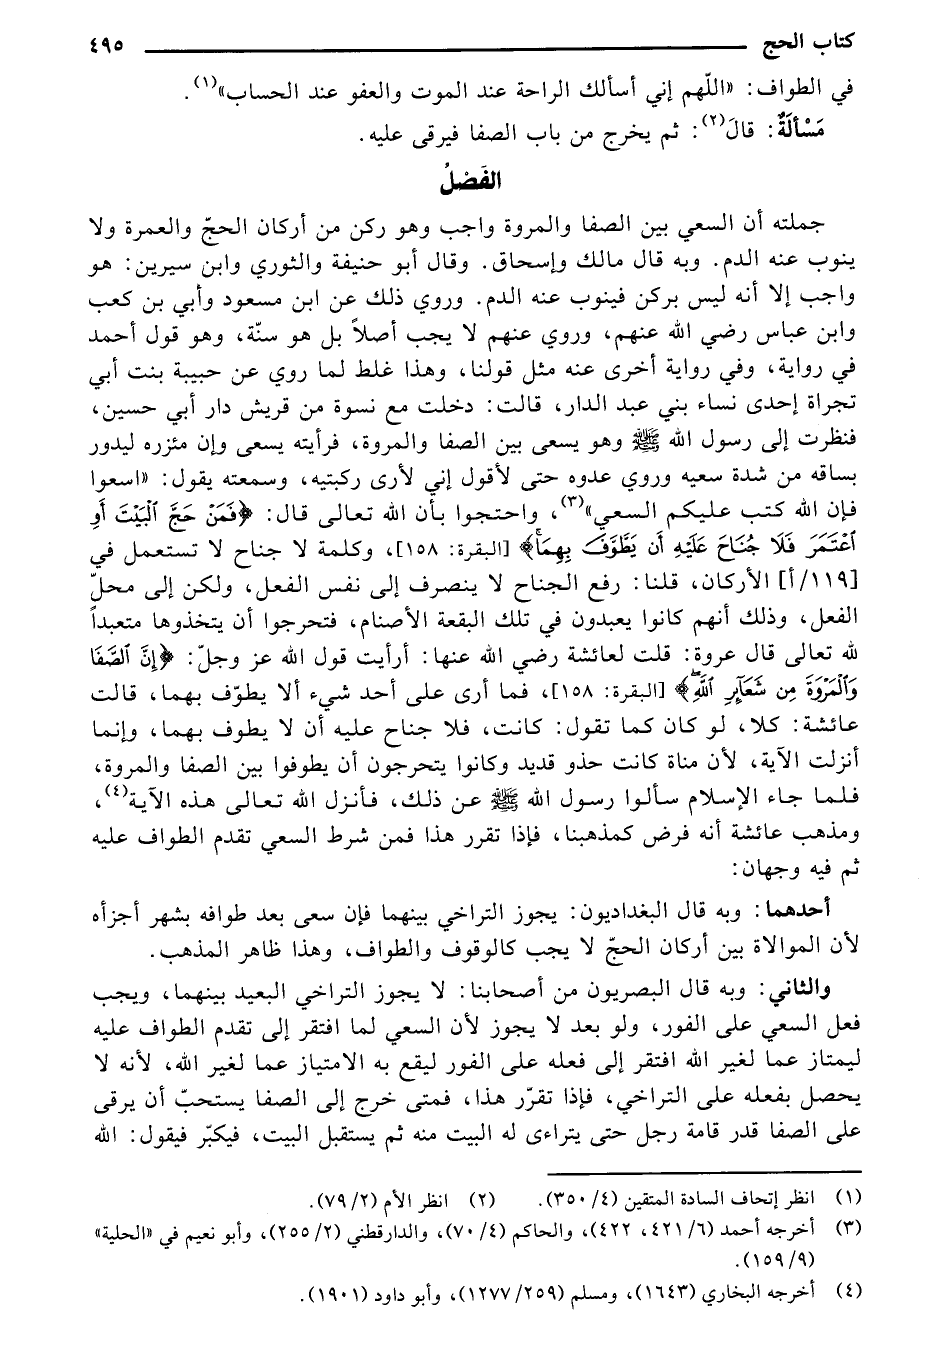 كتاب الحج ٤٩٥
في الطواف: «اللّهم إني أسألك الراحة عند الموت والعفو عند الحساب»(١).
مَسْألَةٌ: قالَ(٢): ثم يخرج من باب الصفا فيرقى عليه.
الفَصْلُ
جملته أن السعي بين الصفا والمروة واجب وهو ركن من أركان الحجّ والعمرة ولا
ينوب عنه الدم. وبه قال مالك وإسحاق. وقال أبو حنيفة والثوري وابن سيرين: هو
واجب إلا أنه ليس بركن فينوب عنه الدم. وروي ذلك عن ابن مسعود وأبي بن كعب
وابن عباس رضي الله عنهم، وروي عنهم لا يجب أصلاً بل هو سنّة، وهو قول أحمد
في رواية، وفي رواية أخرى عنه مثل قولنا، وهذا غلط لما روي عن حبيبة بنت أبي
تجراة إحدى نساء بني عبد الدار، قالت: دخلت مع نسوة من قريش دار أبي حسين،
فنظرت إلى رسول الله ﷺ وهو يسعى بين الصفا والمروة، فرأيته يسعى وإن مئزره ليدور
بساقه من شدة سعيه وروي عدوه حتى لأقول إني لأرى ركبتيه، وسمعته يقول: «اسعوا
فإن الله كتب عليكم السعي»(٣)، واحتجوا بأن الله تعالى قال: ﴿فَمَنْ حَجَّ ٱلْبَيْتَ أَوِ
ٱعْتَمَرَ فَلَا جُنَاحَ عَلَيْهِ أَن يَطَّوَّفَ بِهِمَا﴾ [البقرة: ١٥٨]، وكلمة لا جناح لا تستعمل في
[١١٩/أ] الأركان، قلنا: رفع الجناح لا ينصرف إلى نفس الفعل، ولكن إلى محلّ
الفعل، وذلك أنهم كانوا يعبدون في تلك البقعة الأصنام، فتحرجوا أن يتخذوها متعبداً
لله تعالى قال عروة: قلت لعائشة رضي الله عنها: أرأيت قول الله عز وجلّ: ﴿إِنَّ ٱلصَّفَا
وَٱلْمَرْوَةَ مِن شَعَآئِرِ ٱللَّهِ﴾ [البقرة: ١٥٨]، فما أرى على أحد شيء ألا يطوّف بهما، قالت
عائشة: كلا، لو كان كما تقول: كانت، فلا جناح عليه أن لا يطوف بهما، وإنما
أنزلت الآية، لأن مناة كانت حذو قديد وكانوا يتحرجون أن يطوفوا بين الصفا والمروة،
فلما جاء الإسلام سألوا رسول الله ﷺ عن ذلك، فأنزل الله تعالى هذه الآية(٤)،
ومذهب عائشة أنه فرض كمذهبنا، فإذا تقرر هذا فمن شرط السعي تقدم الطواف عليه
ثم فيه وجهان:
أحدهما: وبه قال البغداديون: يجوز التراخي بينهما فإن سعى بعد طوافه بشهر أجزأه
لأن الموالاة بين أركان الحجّ لا يجب كالوقوف والطواف، وهذا ظاهر المذهب.
والثاني: وبه قال البصريون من أصحابنا: لا يجوز التراخي البعيد بينهما، ويجب
فعل السعي على الفور، ولو بعد لا يجوز لأن السعي لما افتقر إلى تقدم الطواف عليه
ليمتاز عما لغير الله افتقر إلى فعله على الفور ليقع به الامتياز عما لغير الله، لأنه لا
يحصل بفعله على التراخي، فإذا تقرّر هذا، فمتى خرج إلى الصفا يستحبّ أن يرقى
على الصفا قدر قامة رجل حتى يتراءى له البيت منه ثم يستقبل البيت، فيكبّر فيقول: الله
(١) انظر إتحاف السادة المتقين (٤/ ٣٥٠). (٢) انظر الأم (٢/ ٧٩).
(٣) أخرجه أحمد (٦/ ٤٢١، ٤٢٢)، والحاكم (٤/ ٧٠)، والدارقطني (٢/ ٢٥٥)، وأبو نعيم في «الحلية»
(٩/ ١٥٩).
(٤) أخرجه البخاري (١٦٤٣)، ومسلم (٢٥٩/ ١٢٧٧)، وأبو داود (١٩٠١).